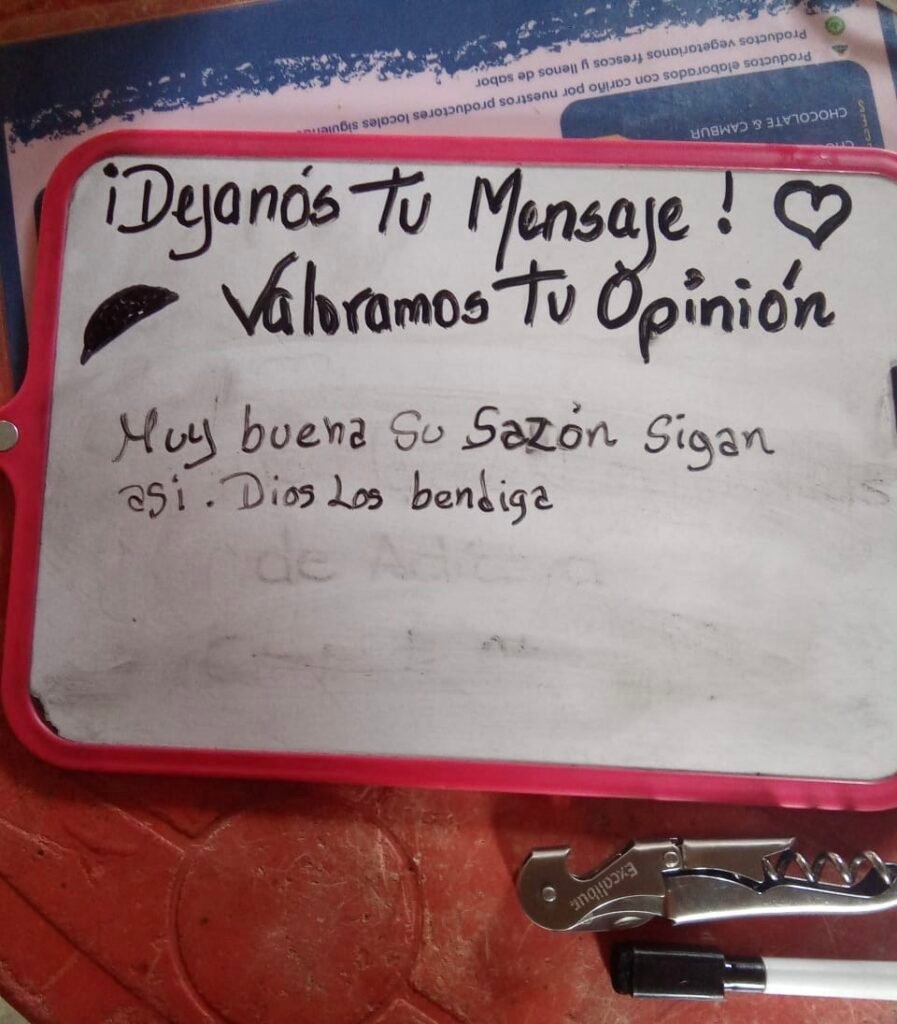 Productos vegetarianos frescos y llenos de sabor
Productos elaborados con cariño por nuestros productores locales
CHOCOLATE & CAMBUR
¡Dejanós Tu Mensaje!
Valoramos Tu Opinión
Muy buena Su Sazón Sigan
asi. Dios Los bendiga
de
Excalibur